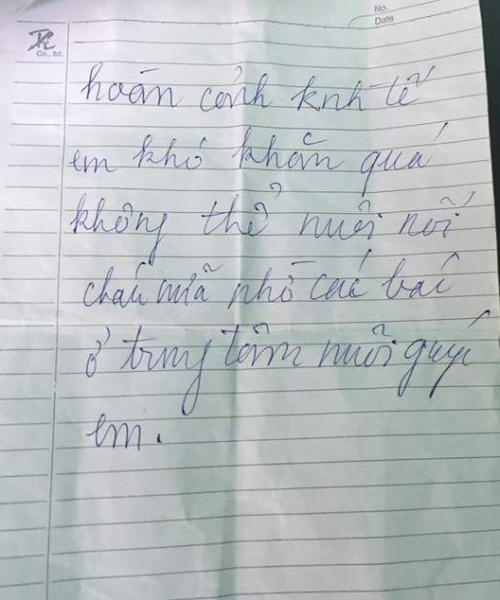 No.
Date
Co., ltd.
hoàn cảnh kinh tế
em khó khăn quá
không thể nuôi nổi
cháu nữa nhờ các bác
ở trung tâm nuôi giúp
em.